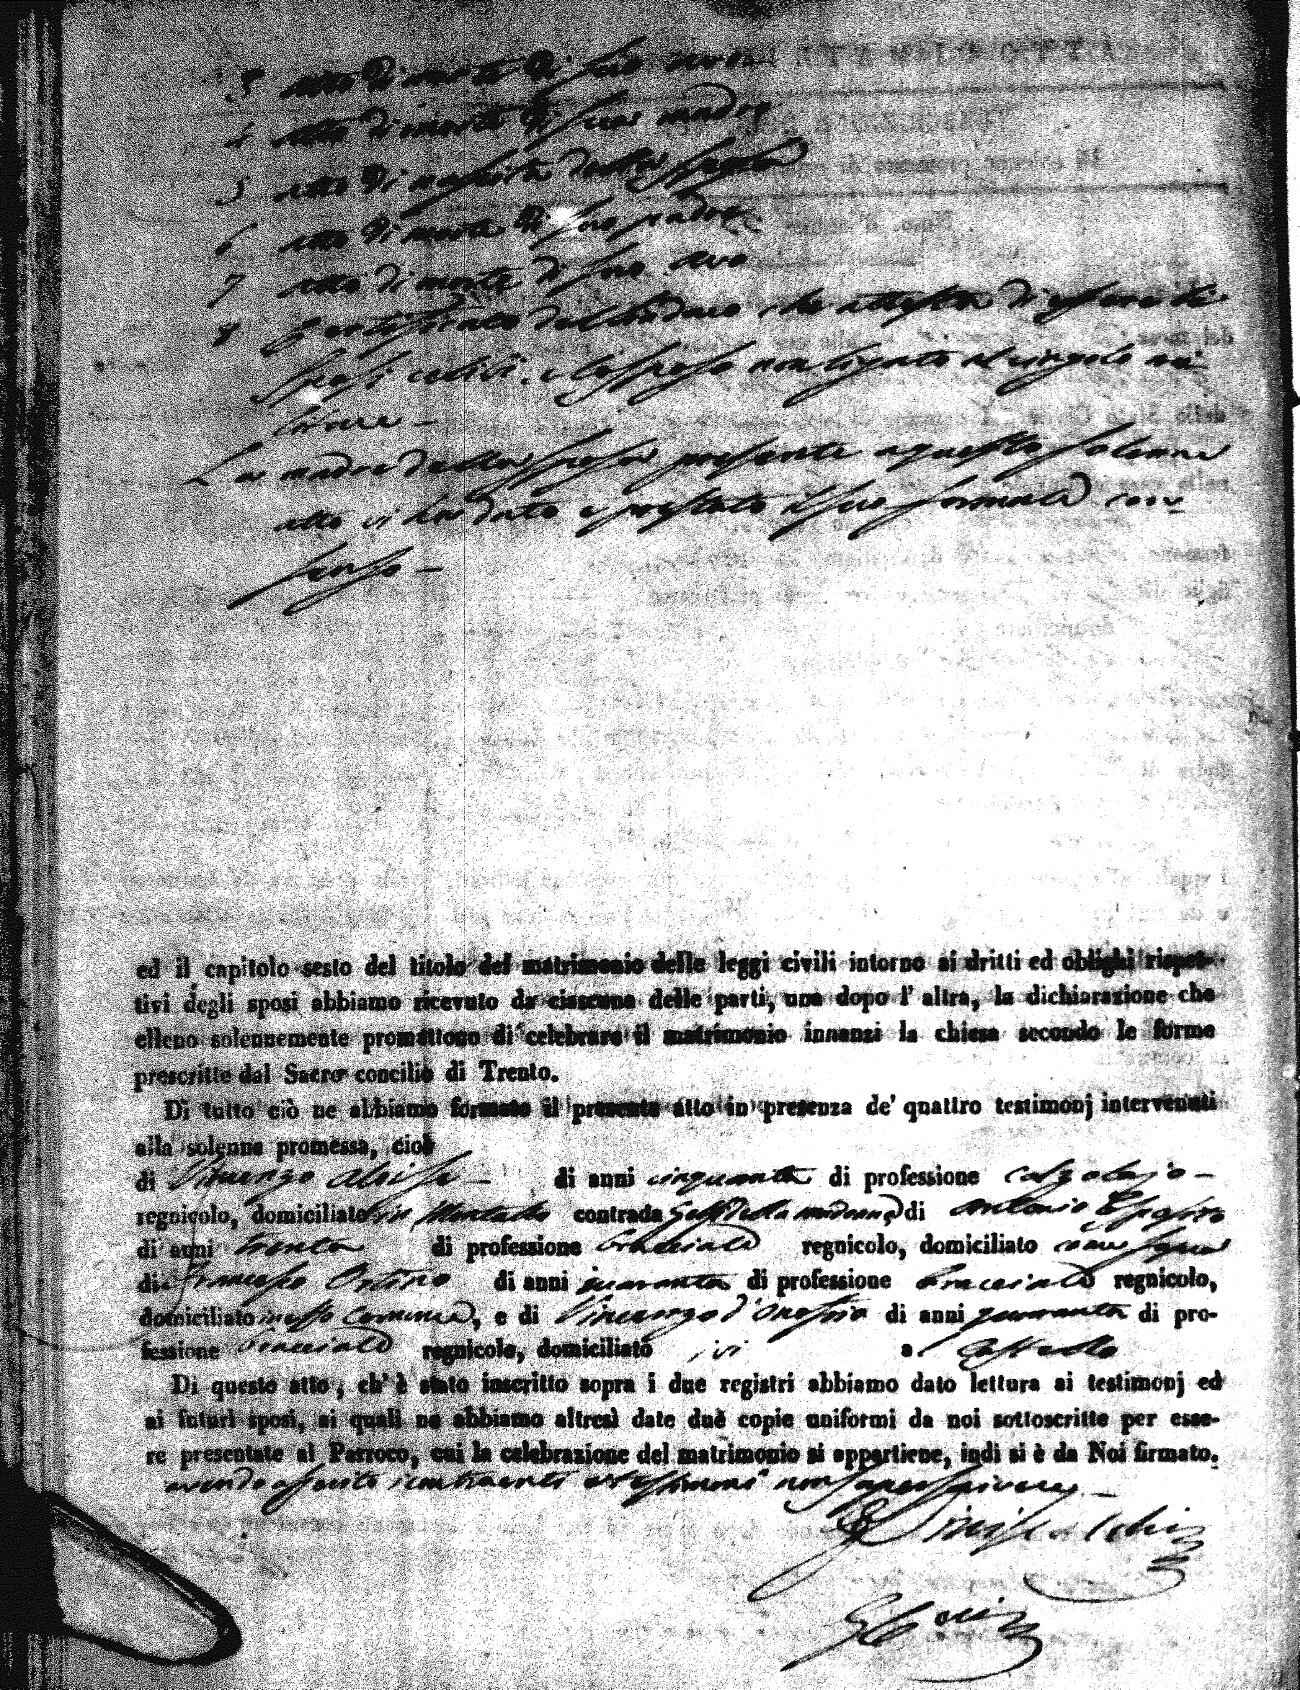 3 Atto di morte di suo avo
4 Atto di morte di sua madre
5 Atto di nascita della sposa
6 Atto di morte di suo padre
7 Atto di morte di suo avo
8 Certificato del Sindaco che attesta di essere li
sposi celibi, e lo sposo non ligato al cingolo mi=
litare —
La madre della sposa presente a questo solenne
atto vi ha dato e prestato il suo formale con=
senso —
ed il capitolo sesto del titolo del matrimonio delle leggi civili intorno ai dritti ed oblighi rispet-
tivi degli sposi abbiamo ricevuto da ciascuna delle parti, una dopo l' altra, la dichiarazione che
elleno solennemente promettono di celebrare il matrimonio innanzi la chiesa secondo le forme
prescritte dal Sacro concilio di Trento.
Di tutto ciò ne abbiamo formato il presente atto in presenza de' quattro testimonj intervenuti
alla solenne promessa, cioè
di Vincenzo Aloisi — di anni cinquanta di professione calzolajo —
regnicolo, domiciliato contrada della madonna di Antonio Esposito
di anni trenta di professione bracciale regnicolo, domiciliato come sopra
di Francesco Ortino di anni quaranta di professione bracciale regnicolo,
domiciliato in esso Comune, e di Vincenzo d'Onofrio di anni quaranta di pro-
fessione bracciale regnicolo, domiciliato ivi a Castello
Di questo atto, ch' è stato inscritto sopra i due registri abbiamo dato lettura ai testimonj ed
ai futuri sposi, ai quali ne abbiamo altresì date due copie uniformi da noi sottoscritte per esse-
re presentate al Parroco, cui la celebrazione del matrimonio si appartiene, indi si è da Noi firmato.
avendo asserito i contraenti e testimoni non saper scrivere —